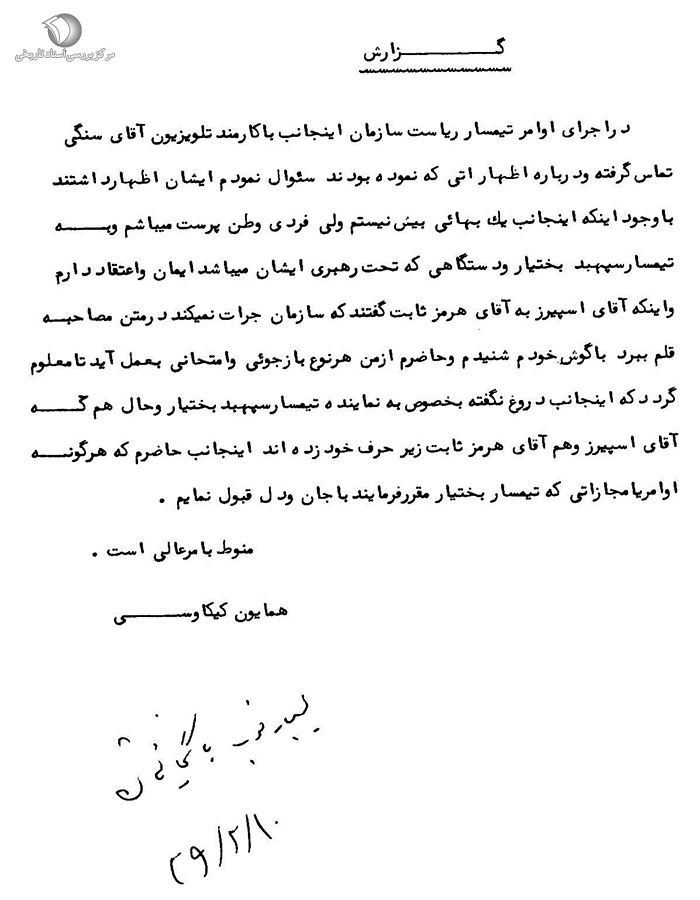 مرکز بررسی اسناد تاریخی
گـــــــزارش
در اجرای اوامر تیمسار ریاست سازمان اینجانب با کارمند تلویزیون آقای سنگی
تماس گرفته و درباره اظهاراتی که نموده بودند سئوال نمودم ایشان اظهار داشتند
با وجود اینکه اینجانب یك بهائی بیش نیستم ولی فردی وطن پرست میباشم و بـــــه
تیمسار سپهبد بختیار و دستگاهی که تحت رهبری ایشان میباشد ایمان و اعتقاد دارم
و اینکه آقای اسپیرز به آقای هرمز ثابت گفتند که سازمان جرات نمیکند در متن مصاحبـــه
قلم ببرد با گوش خودم شنیدم و حاضرم از من هر نوع بازجوئی و امتحانی بعمل آید تا معلوم
گردد که اینجانب دروغ نگفته بخصوص به نماینده تیمسار سپهبد بختیار و حال هم کـــــه
آقای اسپیرز و هم آقای هرمز ثابت زیر حرف خود زده اند اینجانب حاضرم که هرگونـــه
اوامر یا مجازاتی که تیمسار بختیار مقرر فرمایند با جان و دل قبول نمایم .
منوط بامر عالی است .
همایون کیکاوســـــی
بسیار خوب بایگانی شود
۳۹/۲/۱۰